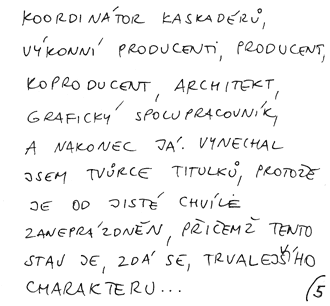 KOORDINÁTOR KASKADÉRŮ,
VÝKONNÍ PRODUCENTI, PRODUCENT,
KOPRODUCENT, ARCHITEKT,
GRAFICKÝ SPOLUPRACOVNÍK,
A NAKONEC JÁ. VYNECHAL
JSEM TVŮRCE TITULKŮ, PROTOŽE
JE OD JISTÉ CHVÍLE
ZANEPRÁZDNĚN, PŘIČEMŽ TENTO
STAV JE, ZDÁ SE, TRVALEJŠÍHO
CHARAKTERU...
5